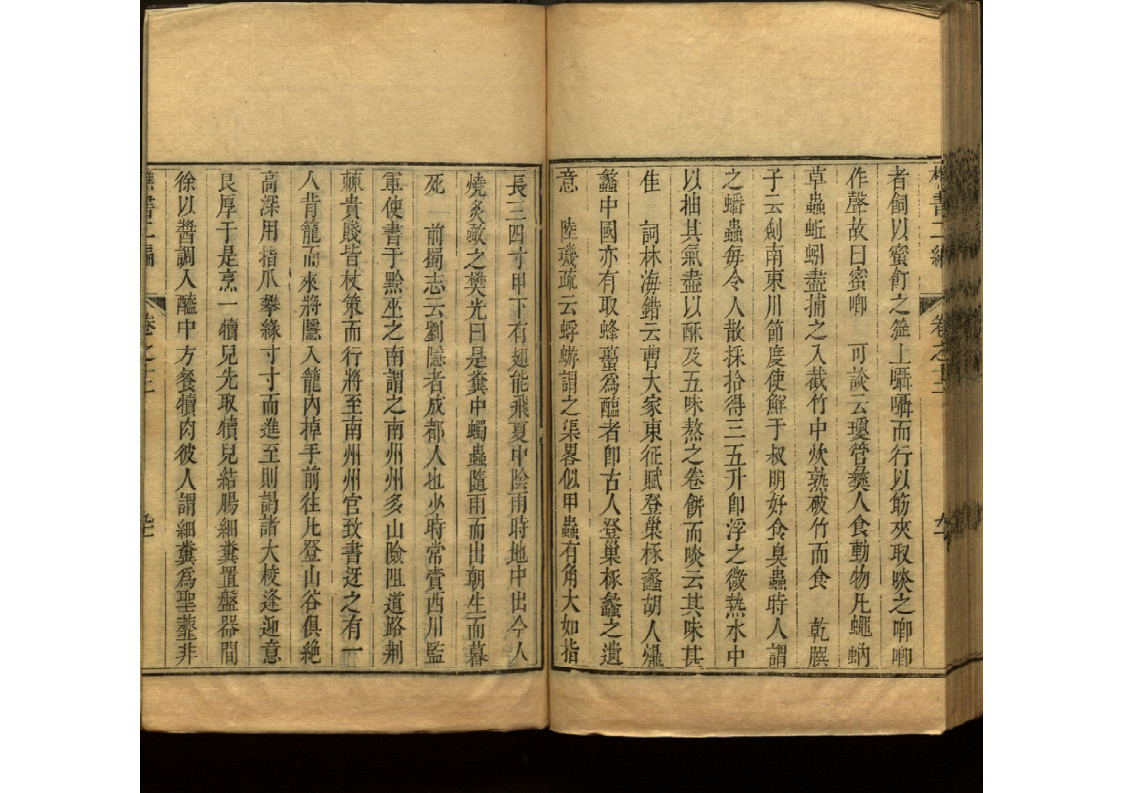 者飼以蜜飣之筵上囁囁而行以筋夾取啖之唧唧
作聲故曰蜜唧　可談云瓊管彝人食動物凡蠅蚋
草蟲蚯蚓盡捕之入截竹中炊熟破竹而食　乾𦠆
子云劍南東川節度使鮮于叔明好食臭蟲時人謂
之蟠蟲每令人散採拾得三五升卽浮之微熱水中
以抽其氣盡以酥及五味熬之卷餅而啖云其味甚
佳　詞林海錯云曹大家東征賦登巢椓蠡胡人
蠡中國亦有取蜂蠆爲醢者卽古人登巢椓蠡之遺
意　陸璣疏云蜉蝣謂之渠畧似甲蟲有角大如指
長三四寸甲下有翅能飛夏中陰雨時地中出今人
燒炙啖之樊光曰是糞中蠋蟲隨雨而出朝生而暮
死　前蜀志云劉隱者成都人也少時常賫西川監
軍使書于黔巫之南謂之南州州多山險阻道路荆
棘貴賤皆杖策而行將至南州州官致書迓之有一
人背籠而來將隱入籠內掉手前往凡登山谷俱絶
高深用指爪攀緣寸寸而進至則謁諸大校逢迎意
艮厚于是烹一犢兒先取犢兒結腸細糞置盤器間
徐以醬調入醯中方餐犢肉彼人謂細糞爲聖虀非
樵書二編
卷之十二